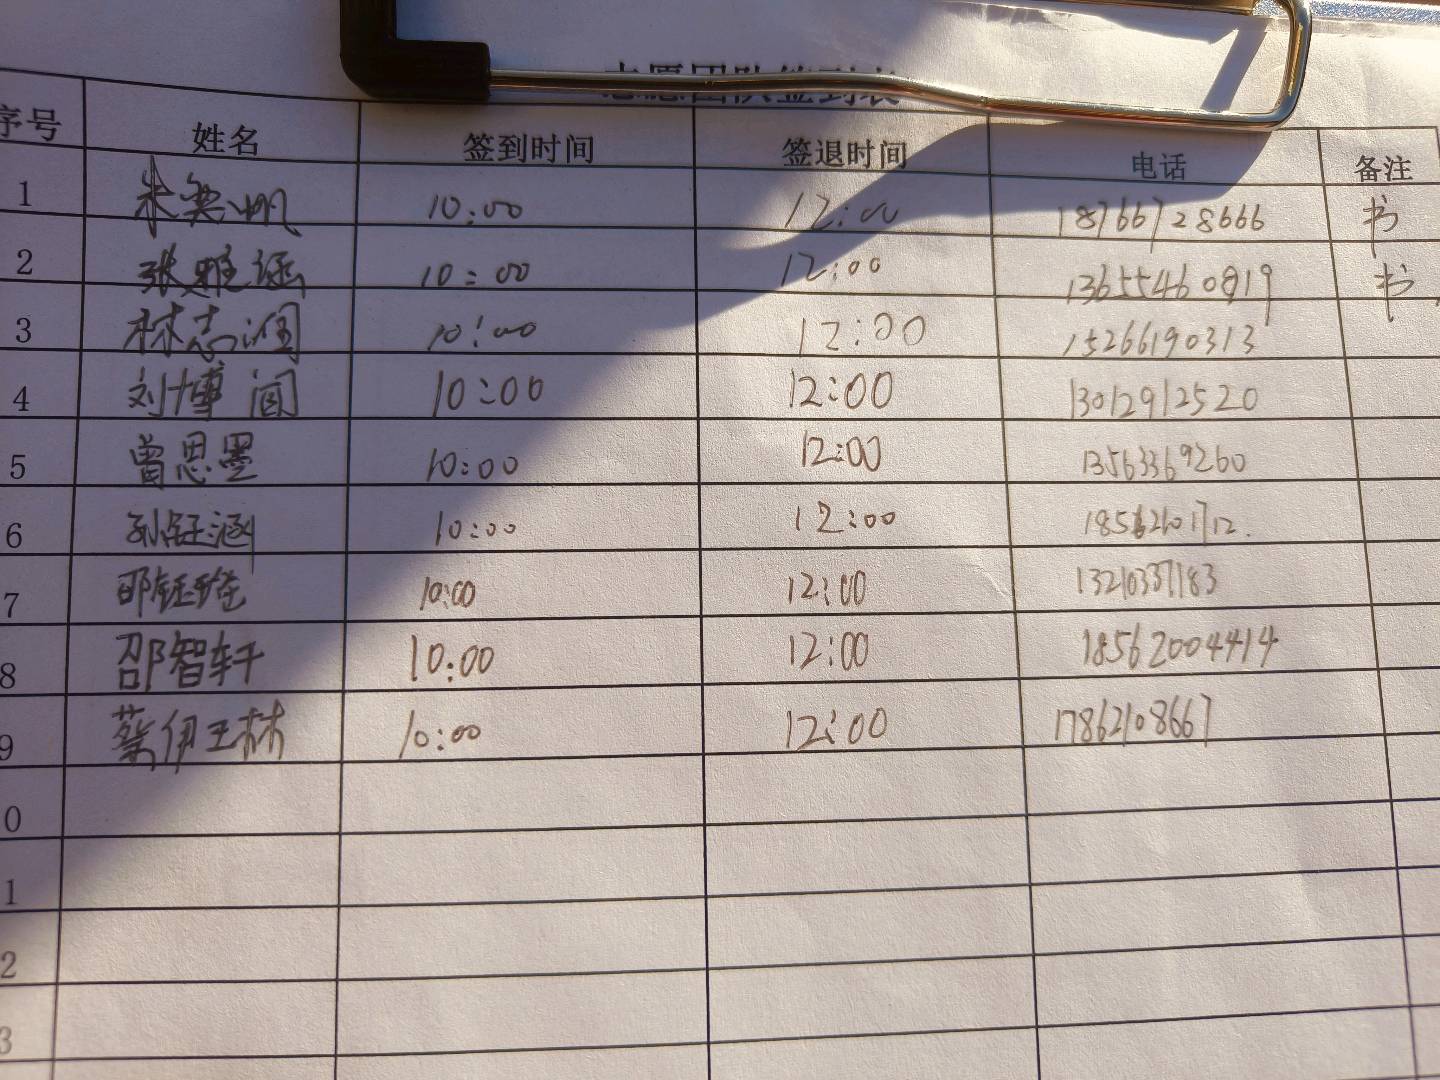 志愿团队签到表
序号 姓名 签到时间 签退时间 电话 备注
1 朱奕帆 10:00 12:00 18766728666 书
2 张雅涵 10:00 12:00 13655460819 书
3 林志润 10:00 12:00 15266190313
4 刘博阎 10:00 12:00 13012912520
5 曾思墨 10:00 12:00 13563369260
6 孙钰涵 10:00 12:00 18562101712.
7 邵钰 10:00 12:00
8 邵智轩 10:00 12:00 18562004414
9 蔡伊琳 10:00 12:00 17862108667
0
1
2
3